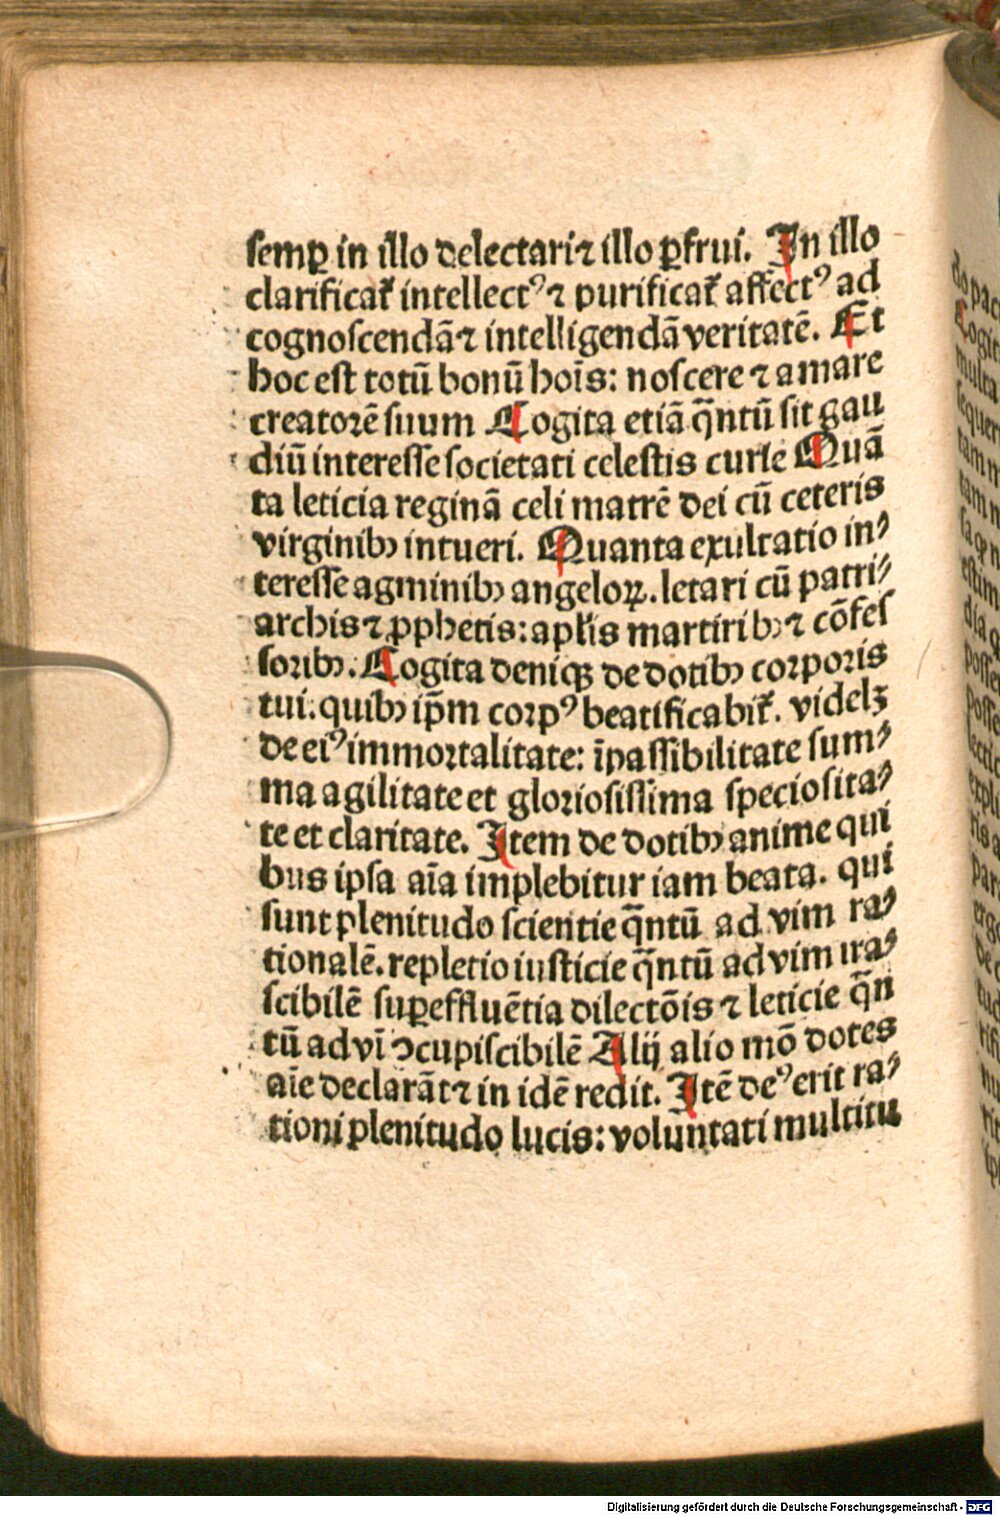 semꝑ in illo delectari ⁊ illo ꝑfrui. In illo
clarificat᷑ intellectꝰ ⁊ purificat᷑ affectꝰ ad
cognoscendā ⁊ intelligendā veritatē. Et
hoc est totū bonū hoīs: noscere ⁊ amare
creatorē suum Cogita etiā q̄ntū sit gau
diū interesse societati celestis curie Quā
ta leticia reginā celi matrē dei cū ceteris
virginibꝫ intueri. Quanta exultatio in⸗
teresse agminibꝫ angeloꝝ. letari cū patri⸗
archis ⁊ ꝓphetis: apl̄is martiribꝫ ⁊ cōfes
soribꝫ. Cogita deniqꝫ de dotibꝫ corporis
tui. quibꝫ ip̄m corpꝰ beatificabit᷑. videlꝫ
de eiꝰ immortalitate: īpassibilitate sum⸗
ma agilitate et gloriosissima speciosita⸗
te et claritate. Item de dotibꝫ anime qui
bus ipsa aīa implebitur iam beata. qui
sunt plenitudo scientie q̄ntū ad vim ra⸗
tionalē. repletio iusticie q̄ntū ad vim ira⸗
scibilē suꝑeffluētia dilectōis ⁊ leticie q̄n
tū ad vī ↄcupiscibilē Alij alio mō dotes
aīe declarāt ⁊ in idē redit. Itē deꝰ erit ra⸗
tioni plenitudo lucis: voluntati multitu
Digitalisierung gefördert durch die Deutsche Forschungsgemeinschaft - DFG